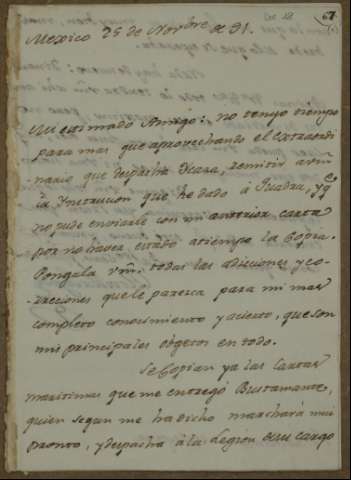 67
Mexico 25 de Novbre de 91.
Mi estimado Amigo: no tengo tiempo
para mas que aprovechando el extraordi
nario que despacha remitir a vm
la Ynstruccion que he dado à Quadra, y qe
no pude enviarle con mi anterior carta
por no haver estado atiempo la Copia.
Pongala vm. todas las adiciones y co-
rrecciones que le paresca para mi mas
completo conocimiento y acierto, que son
mis principales objetos en todo.
Se Copian ya las Cartas
maritimas que me entregó Bustamante,
quien segun me ha dicho marchará mui
pronto, y despacha à la de su cargo